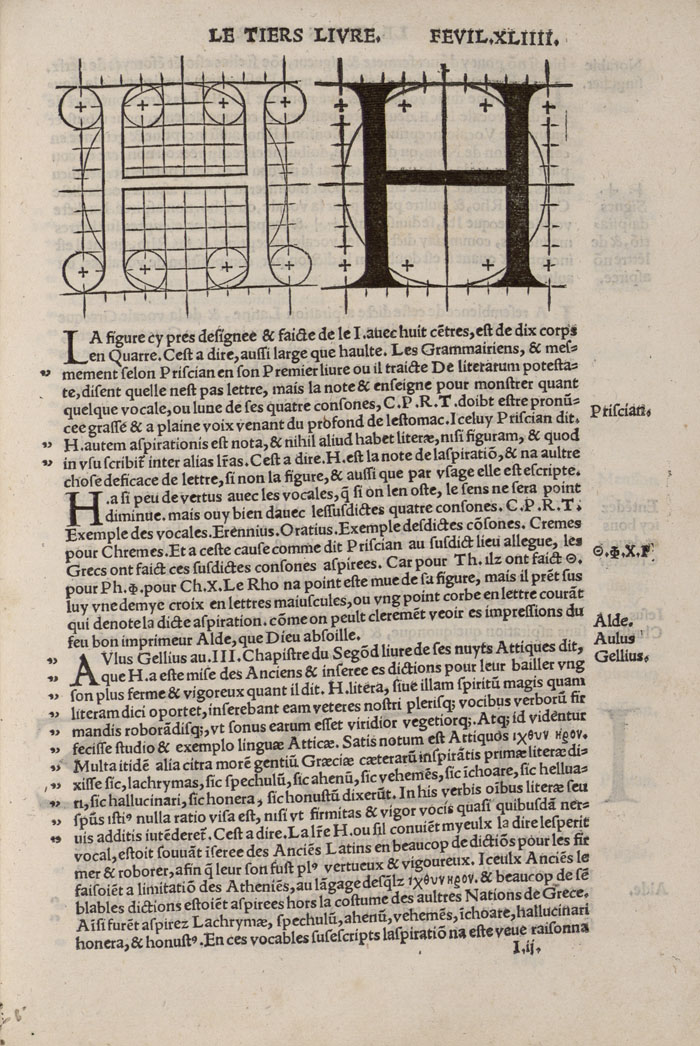 LE TIERS LIVRE. FEVIL.XLIIII.
LA figure cy pres designee & faicte de le I.auec huit cẽtres, est de dix corps
en Quarre. Cest a dire, aussi large que haulte. Les Grammairiens, & mes-
mement selon Priscian en son Premier liure ou il traicte De literarum potesta-
te, disent quelle nest pas lettre, mais la note & enseigne pour monstrer quant
quelque vocale, ou lune de ses quatre consones, C.P.R.T. doibt estre pronũ-
cee grasse & a plaine voix venant du profond de lestomac. Iceluy Priscian dit.
Priscian.
H.autem aspirationis est nota, & nihil aliud habet literæ, nisi figuram, & quod
in vsu scribit̃ inter alias lr̃as. Cest a dire. H.est la note de laspiratiõ, & na aultre
chose deficace de lettre, si non la figure, & aussi que par vsage elle est escripte.
H.a si peu de vertus auec les vocales, q̃ si on len oste, le sens ne sera point
diminue. mais ouy bien dauec lessusdictes quatre consones. C.P.R.T.
Exemple des vocales. Erennius. Oratius. Exemple desdictes cõsones. Cremes
pour Chremes. Et a ceste cause comme dit Priscian au susdict lieu allegue, les
Grecs ont faict ces susdictes consones aspirees. Car pour Th. ilz ont faict Θ.
Θ.Φ.X.Ρ
pour Ph.Φ.pour Ch.X.Le Rho na point este mue de sa figure, mais il prẽt sus
luy vne demye croix en lettres maiuscules, ou vng point corbe en lettre courãt
qui denote la dicte aspiration. cõme on peult cleremẽt veoir es impressions du
feu bon imprimeur Alde, que Dieu absoille.
Alde.
Aulus
Gellius.
AVlus Gellius au.III. Chapistre du Segõd liure de ses nuyts Attiques dit,
que H.a este mise des Anciens & inseree es dictions pour leur bailler vng
son plus ferme & vigoreux quant il dit. H.litera, siue illam spiritũ magis quam
literam dici oportet, inserebant eam veteres nostri plerisq; vocibus verborũ fir
mandis roborãdisq;, vt sonus earum esset viridior vegetiorq;. Atq; id videntur
fecisse studio & exemplo linguæ Atticæ. Satis notum est Attiquos ιχθυν ηρον.
Multa itidẽ alia citra morẽ gentiũ Græciæ cæterarũ inspirãtis primæ literæ di-
xisse sic, lachrymas, sic spechulũ, sic ahenũ, sic vehemẽs, sic ichoare, sic hellua-
ri, sic hallucinari, sic honera, sic honustũ dixerũt. In his verbis oĩbus literæ seu
spũs istiꝰ nulla ratio visa est, nisi vt firmitas & vigor vocis quasi quibusdã ner-
uis additis iutẽderet̃. Cest a dire. La lr̃e H. ou sil conuiẽt myeulx la dire lesperit
vocal, estoit souuãt ĩseree des Anciẽs Latins en beaucop de dictiõs pour les fir
mer & roborer, afin q̃ leur son fust plꝰ vertueux & vigoureux. Iceulx Anciẽs le
faisoiẽt a limitatiõ des Atheniẽs, au lãgage desq̃lz ιχθυν ηρον. & beaucop de sẽ
blables dictions estoiẽt aspirees hors la costume des aultres Nations de Grece.
Aĩsi furẽt aspirez Lachrymæ, spechulũ, ahenũ, vehemẽs, ĩchoare, hallucinari
honera, & honustꝰ. En ces vocables susescripts laspiratiõ na este veue raisonna
I.ij.